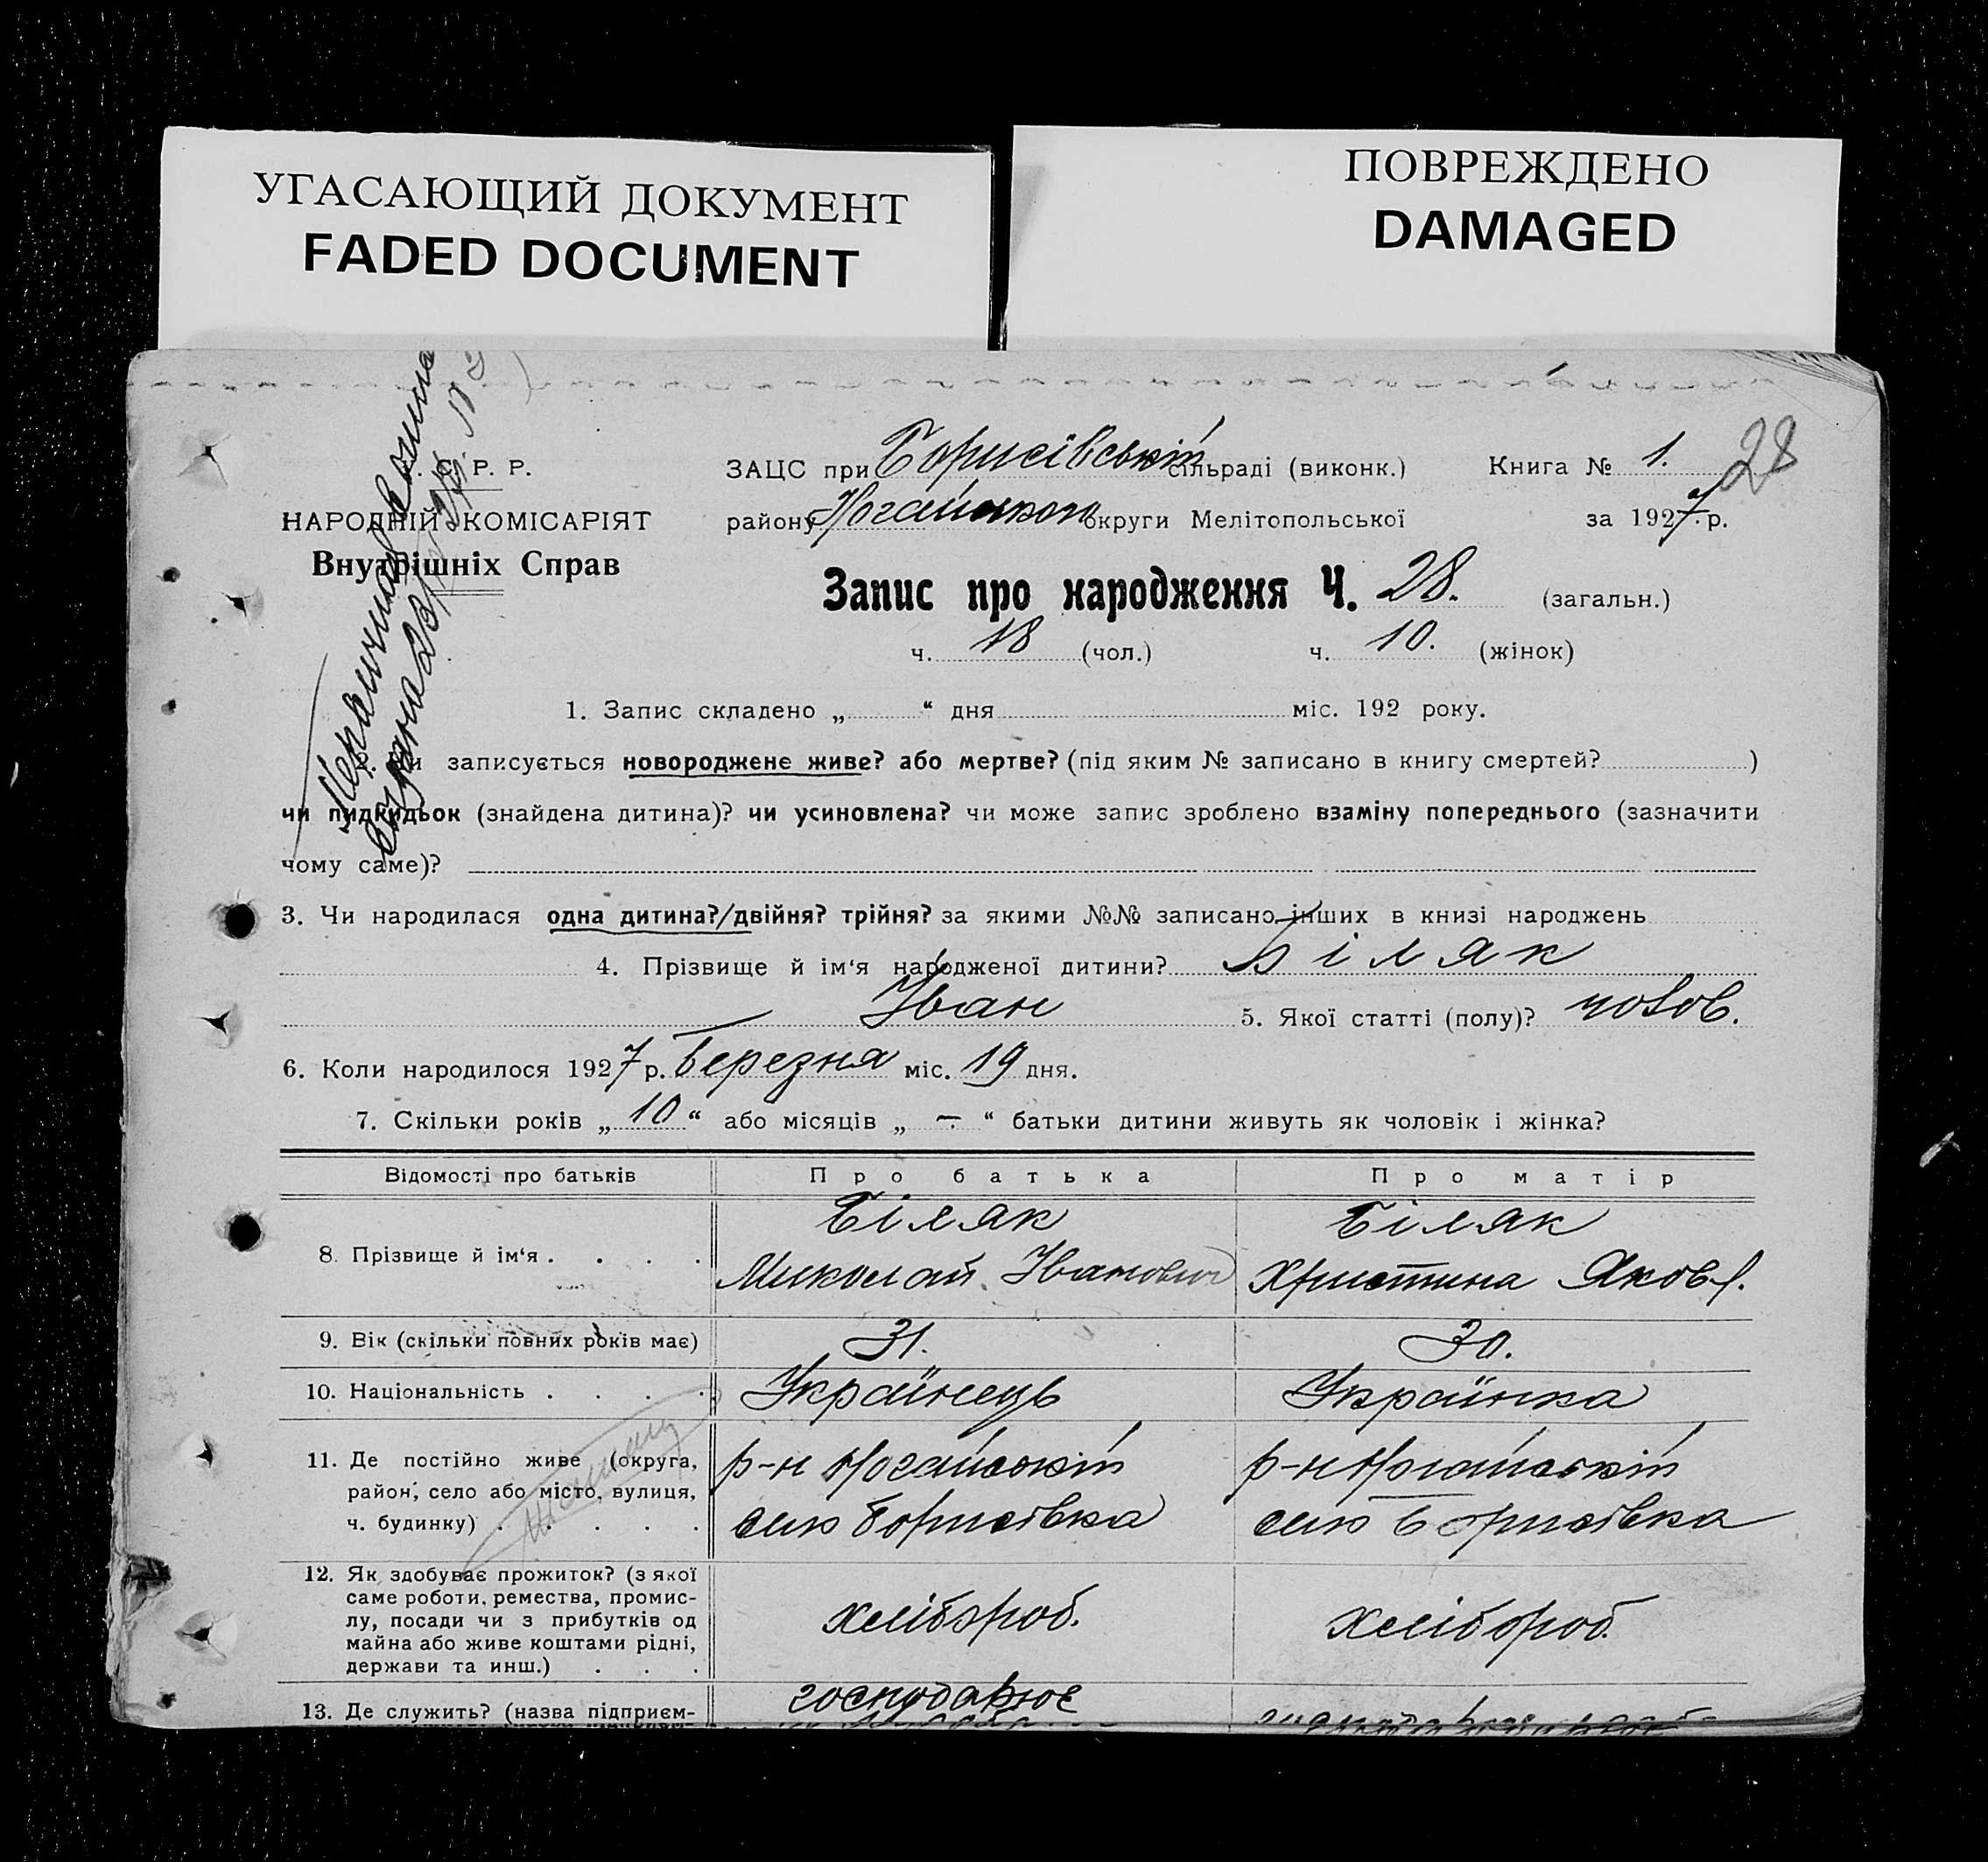 УГАСАЮЩИЙ ДОКУМЕНТ
FADED DOCUMENT
ПОВРЕЖДЕНО
DAMAGED
С. Р. Р.
НАРОДНІЙ КОМІСАРІЯТ
Внутрішніх Справ
28
ЗАЦС при Борисівській сільраді (виконк.) Книга № 1.
району Ногайського округи Мелітопольської за 1927 р.
Запис про народження Ч. 28. (загальн.)
ч. 18 (чол.) ч. 10. (жінок)
1. Запис складено „ “ дня міс. 192 року.
записується новороджене живе? або мертве? (під яким № записано в книгу смертей? )
чи підкидьок (знайдена дитина)? чи усиновлена? чи може запис зроблено взаміну попереднього (зазначити
чому саме)?
3. Чи народилася одна дитина?/двійня? трійня? за якими №№ записано інших в книзі народжень
4. Прізвище й ім‘я народженої дитини? Біляк
Іван 5. Якої статті (полу)? чолов.
6. Коли народилося 1927 р. березня міс. 19 дня.
7. Скільки років „ 10 “ або місяців „ — “ батьки дитини живуть як чоловік і жінка?
Відомості про батьків Про батька Про матір
Біляк Біляк
8. Прізвище й ім‘я . . . .
Миколай Іванович Христина Яковл.
9. Вік (скільки повних років має) 31. 30.
10. Національність . . . . Українець Українка
11. Де постійно живе (округа, р-н Ногайській р-н Ногайській
район, село або місто, вулиця,
ч. будинку) . . . . . село Борисівка село Борисівка
12. Як здобуває прожиток? (з якої
саме роботи, ремества, промис-
лу, посади чи з прибутків од хлібороб. хлібороб.
майна або живе коштами рідні,
держави та инш.) . . .
господарює
13. Де служить? (назва підприєм-